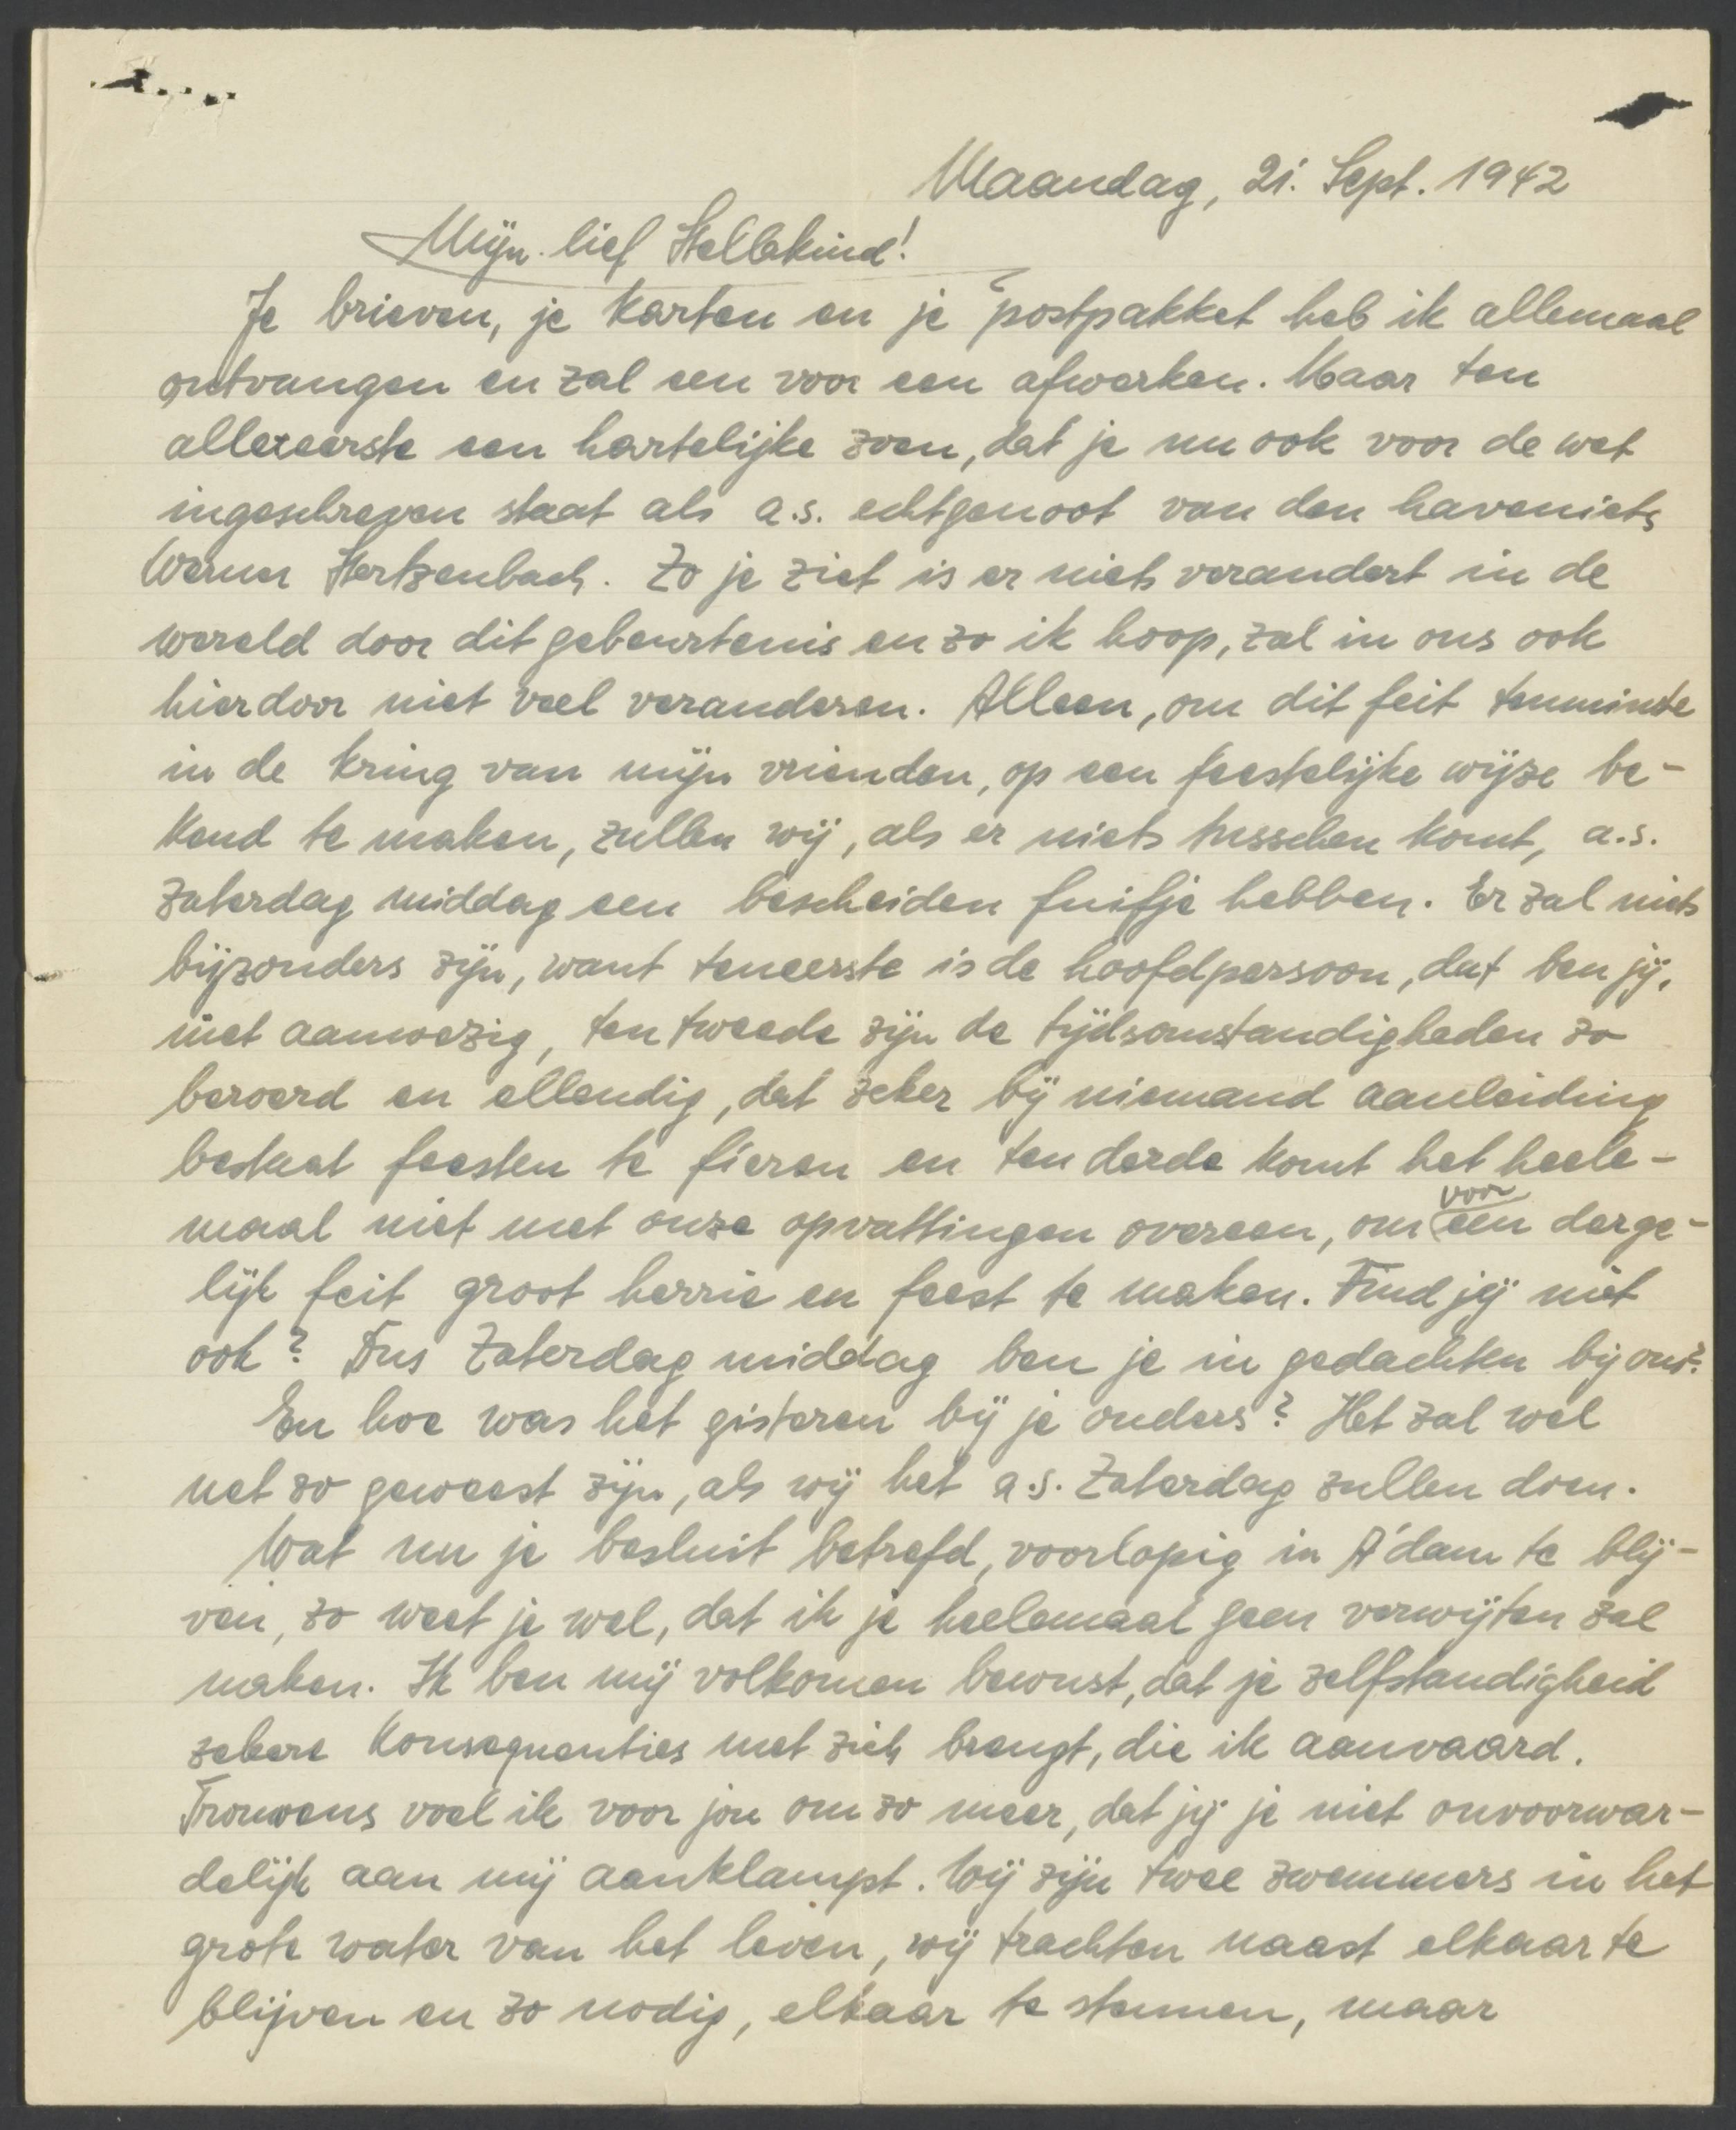 Maandag, 21. Sept. 1942
Mijn lief Stellekind!
Je brieven, je karten en je postpakket heb ik allemaal
ontvangen en zal een voor een afwerken. Maar ten
allereerste een hartelijke zoen, dat je nu ook voor de wet
ingeschreven staat als a.s. echtgenoot van den haveniets
Werner Hertzenbach. Zo je ziet is er niets verandert in de
wereld door dit gebeurtenis en zo ik hoop, zal in ons ook
hierdoor niet veel veranderen. Alleen, om dit feit tenminste
in de kring van mijn vrienden, op een feestelijke wijze be-
kend te maken, zullen wij, als er niets tusschen komt, a.s.
Zaterdag middag een bescheiden fuifje hebben. Er zal niets
bijzonders zijn, want teneerste is de hoofdpersoon, dat ben jij,
niet aanwezig, ten tweede zijn de tijdsomstandigheden zo
beroerd en ellendig, dat zeker bij niemand aanleiding
bestaat feesten te fieren en ten derde komt het heele-
maal niet met onze opvattingen overeen, om voor een derge-
lijk feit groot herrie en feest te maken. Find jij niet
ook? Dus Zaterdag middag ben je in gedachten bij ons?
En hoe was het gisteren bij je ouders? Het zal wel
net zo geweest zijn, als wij het a.s. Zaterdag zullen doen.
Wat nu je besluit betrefd, voorlopig in A'dam te blij-
ven, zo weet je wel, dat ik je heelemaal geen verwijten zal
maken. Ik ben mij volkomen bewust, dat je zelfstandigheid
zekere konsequenties met zich brengt, die ik aanvaard.
Trouwens voel ik voor jou om zo meer, dat jij je niet onvoorwar-
delijk aan mij aanklampt. Wij zijn twee zwemmers in het
grote water van het leven, wij trachten naast elkaar te
blijven en zo nodig, elkaar te steunen, maar